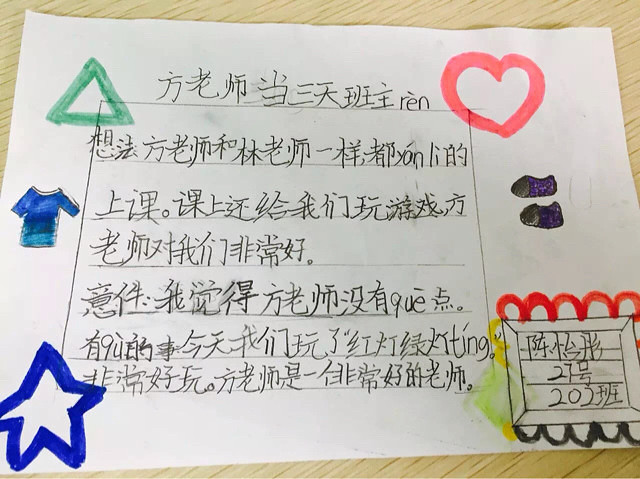 方老师当三天班主rèn
想法:方老师和林老师一样,都xùn lì的
上课。课上还给我们玩游戏,方
老师对我们非常好。
意件:我觉得方老师没有quē点。
有qù的事:今天我们玩了“红灯绿灯tíng”。
非常好玩。方老师是一个非常好的老师。
陈怡彤
27号
202班